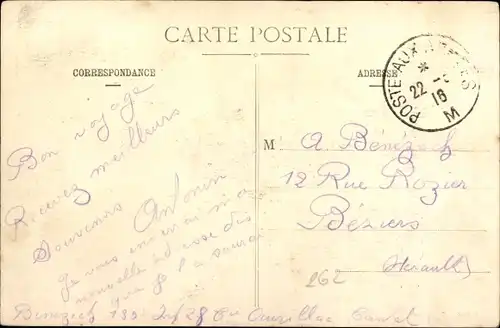 CARTE POSTALE
CORRESPONDANCE
ADRESSE
POSTE AUX ARMÉES
* 22 - 16
M
Bon voyage
Recevez meilleurs
Souvenirs Antonin
Je vous enverrai ma
nouvelle adresse dès
que je la saurai
Bénézech 139 28 Aurillac Cantal
M A Bénézech
12 Rue Rozier
Béziers
(Hérault)
262